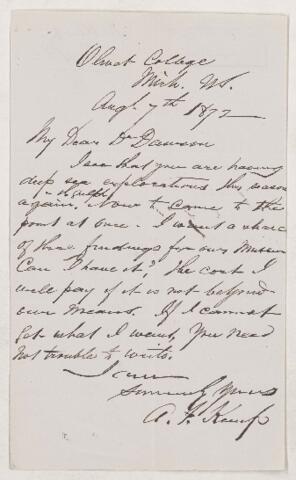 Olivet College
Mich. US.
Augt 7th 1872
My Dear Dr Dawson
I see that you are having
deep sea explorations this season
again. Now to come to the
point at once. I want a share
of these findings for our Museum
Can I have it? The cost I
will pay if it is not beyond
our means. If I cannot
get what I want, you need
not trouble to write.
I am
Sincerely Yours
A. F. Kemp